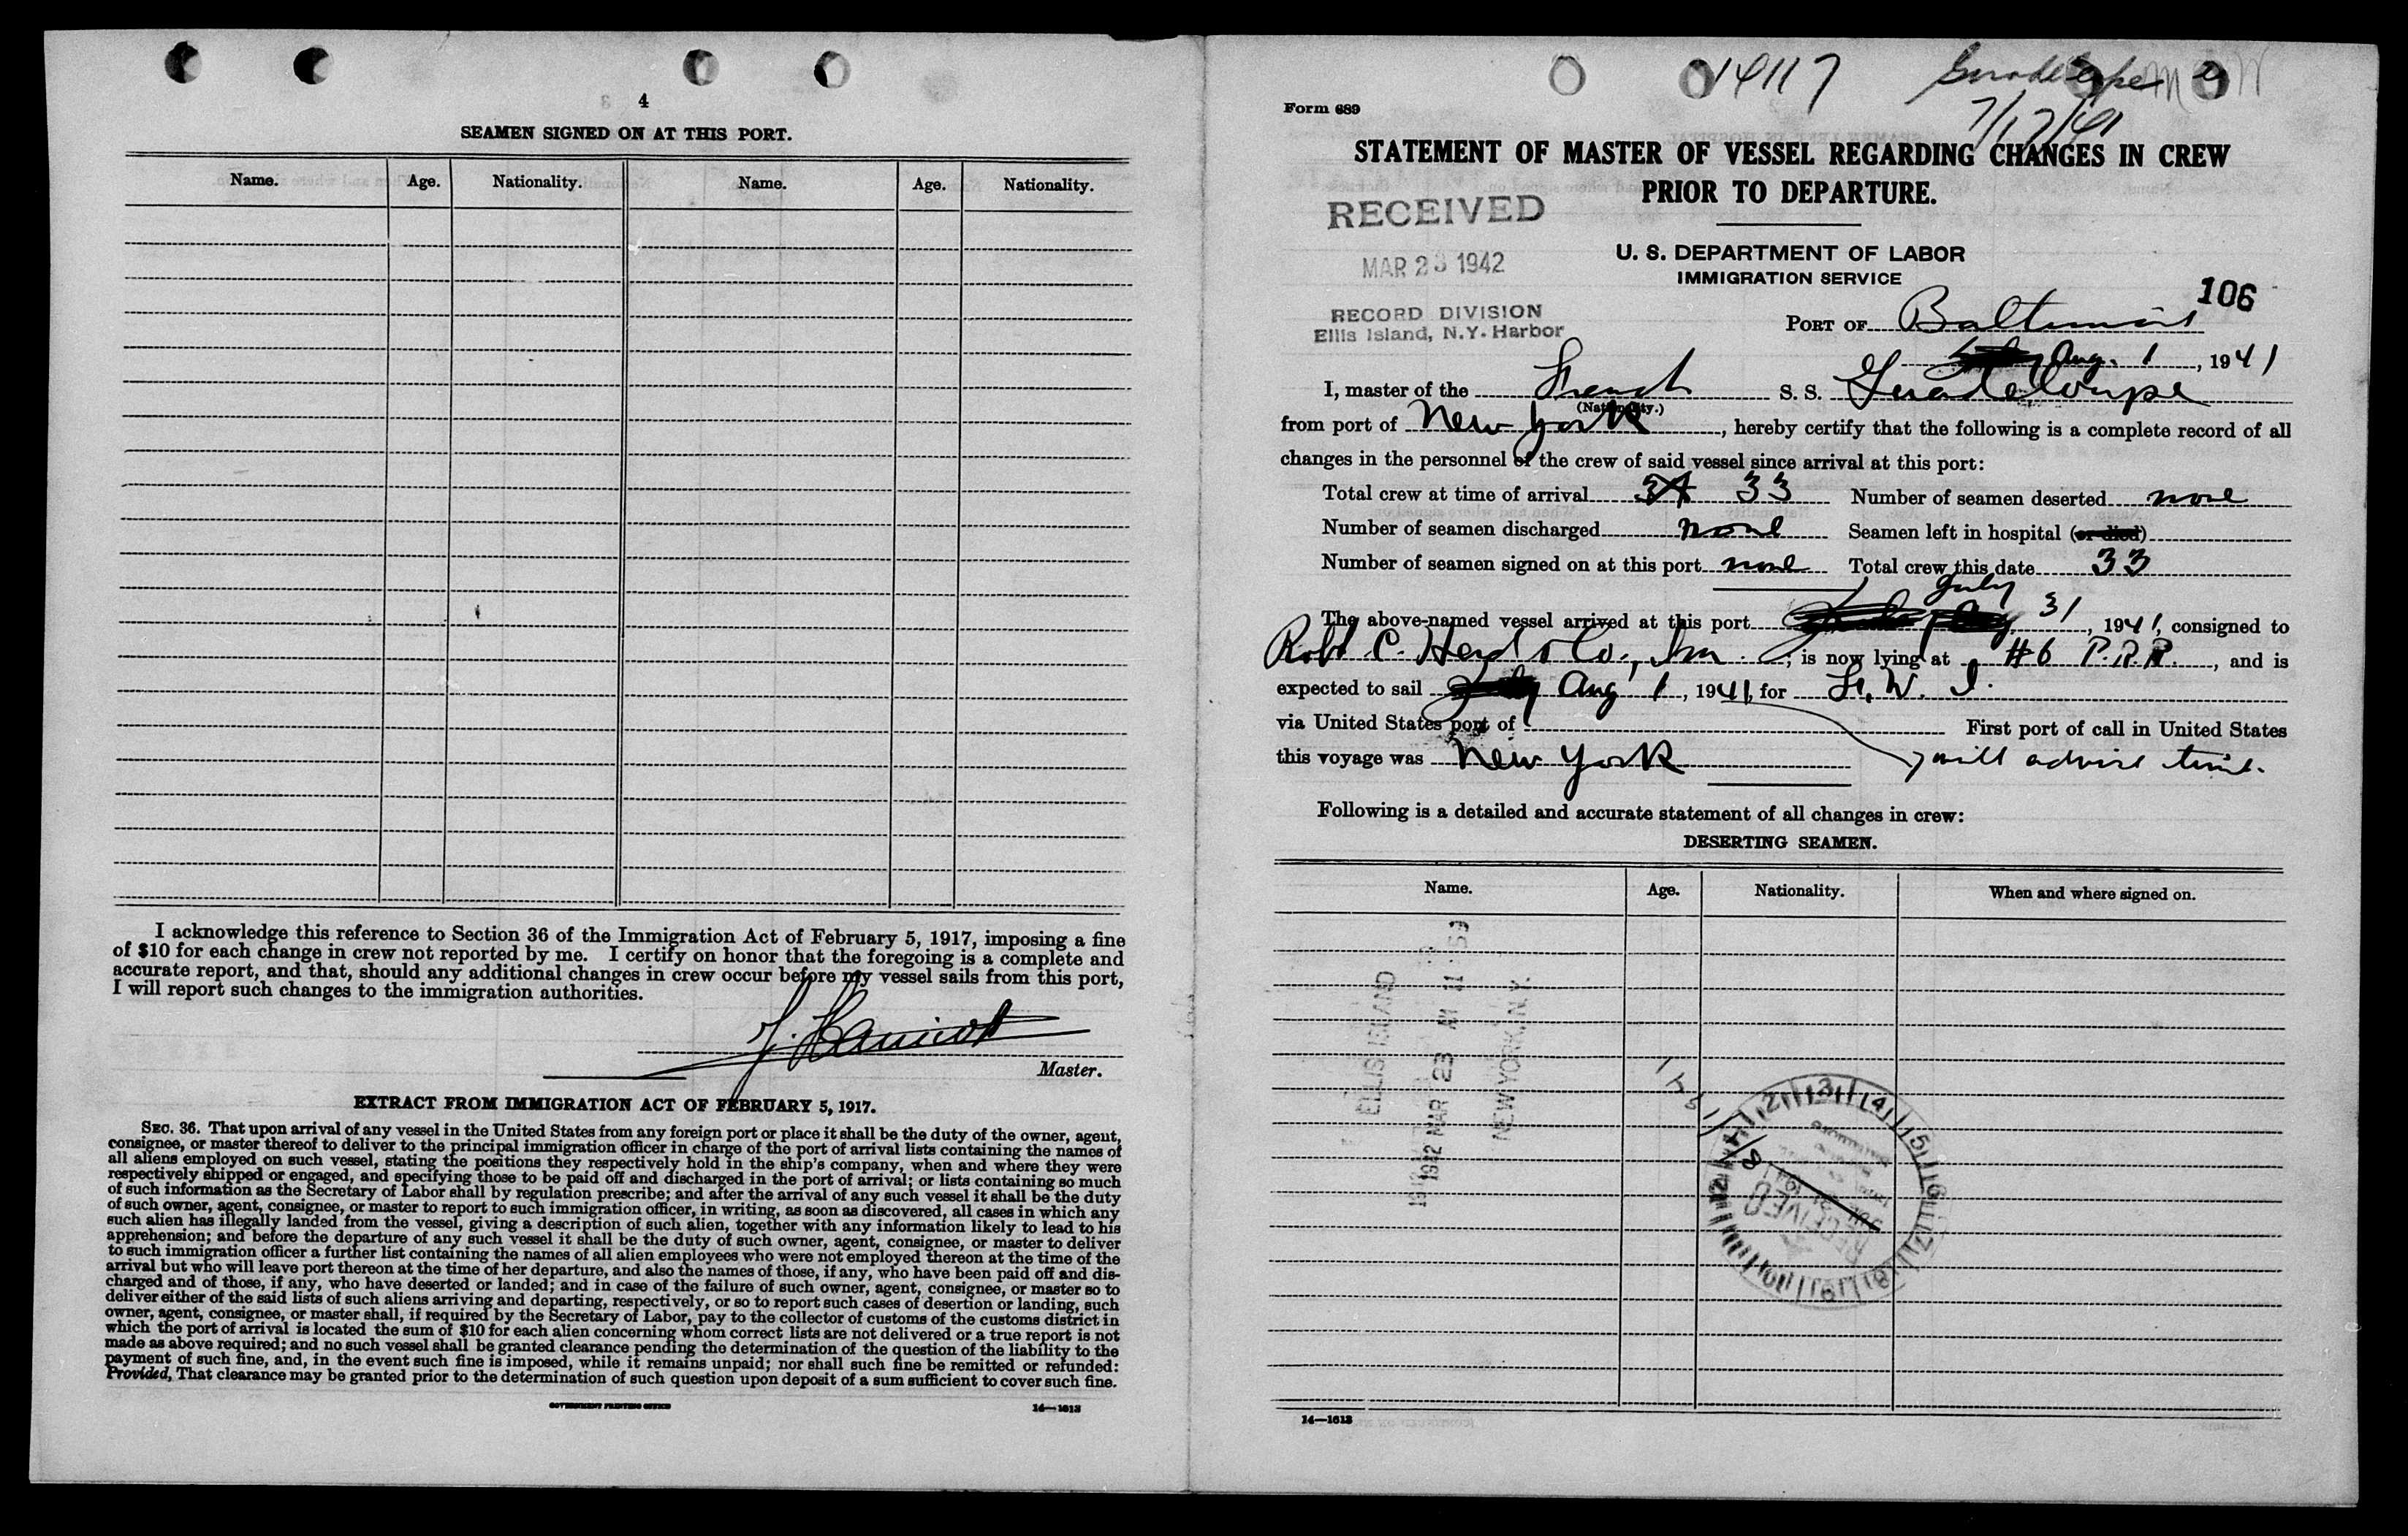 4
SEAMEN SIGNED ON AT THIS PORT.
Name. Age. Nationality. Name. Age. Nationality.
I acknowledge this reference to Section 36 of the Immigration Act of February 5, 1917, imposing a fine
of $10 for each change in crew not reported by me. I certify on honor that the foregoing is a complete and
accurate report, and that, should any additional changes in crew occur before my vessel sails from this port,
I will report such changes to the immigration authorities.
Master.
EXTRACT FROM IMMIGRATION ACT OF FEBRUARY 5, 1917.
SEC. 36. That upon arrival of any vessel in the United States from any foreign port or place it shall be the duty of the owner, agent,
consignee, or master thereof to deliver to the principal immigration officer in charge of the port of arrival lists containing the names of
all aliens employed on such vessel, stating the positions they respectively hold in the ship's company, when and where they were
respectively shipped or engaged, and specifying those to be paid off and discharged in the port of arrival; or lists containing so much
of such information as the Secretary of Labor shall by regulation prescribe; and after the arrival of any such vessel it shall be the duty
of such owner, agent, consignee, or master to report to such immigration officer, in writing, as soon as discovered, all cases in which any
such alien has illegally landed from the vessel, giving a description of such alien, together with any information likely to lead to his
apprehension; and before the departure of any such vessel it shall be the duty of such owner, agent, consignee, or master to deliver
to such immigration officer a further list containing the names of all alien employees who were not employed thereon at the time of the
arrival but who will leave port thereon at the time of her departure, and also the names of those, if any, who have been paid off and dis-
charged and of those, if any, who have deserted or landed; and in case of the failure of such owner, agent, consignee, or master so to
deliver either of the said lists of such aliens arriving and departing, respectively, or so to report such cases of desertion or landing, such
owner, agent, consignee, or master shall, if required by the Secretary of Labor, pay to the collector of customs of the customs district in
which the port of arrival is located the sum of $10 for each alien concerning whom correct lists are not delivered or a true report is not
made as above required; and no such vessel shall be granted clearance pending the determination of the question of the liability to the
payment of such fine, and, in the event such fine is imposed, while it remains unpaid; nor shall such fine be remitted or refunded:
Provided, That clearance may be granted prior to the determination of such question upon deposit of a sum sufficient to cover such fine.
GOVERNMENT PRINTING OFFICE 14—1613
14117 Guadeloupe
7/17/41
Form 689
STATEMENT OF MASTER OF VESSEL REGARDING CHANGES IN CREW
PRIOR TO DEPARTURE.
RECEIVED
MAR 23 1942
RECORD DIVISION
Ellis Island, N.Y. Harbor
U. S. DEPARTMENT OF LABOR
IMMIGRATION SERVICE
106
PORT OF Baltimore
Aug. 1, 1941
I, master of the French S. S. Guadeloupe
(Nationality.)
from port of New York, hereby certify that the following is a complete record of all
changes in the personnel of the crew of said vessel since arrival at this port:
Total crew at time of arrival 33 Number of seamen deserted none
Number of seamen discharged none Seamen left in hospital (or died)
Number of seamen signed on at this port none Total crew this date 33
The above-named vessel arrived at this port July 31, 1941, consigned to
Robt C. Herd & Co., Inc.; is now lying at #6 P.R.R., and is
expected to sail Aug 1, 1941, for Fr. W. I.
via United States port of First port of call in United States
this voyage was New York will advise time.
Following is a detailed and accurate statement of all changes in crew:
DESERTING SEAMEN.
Name. Age. Nationality. When and where signed on.
ELLIS ISLAND
1942 MAR 23 11 59
NEW YORK, N.Y.
RECEIVED
14—1613